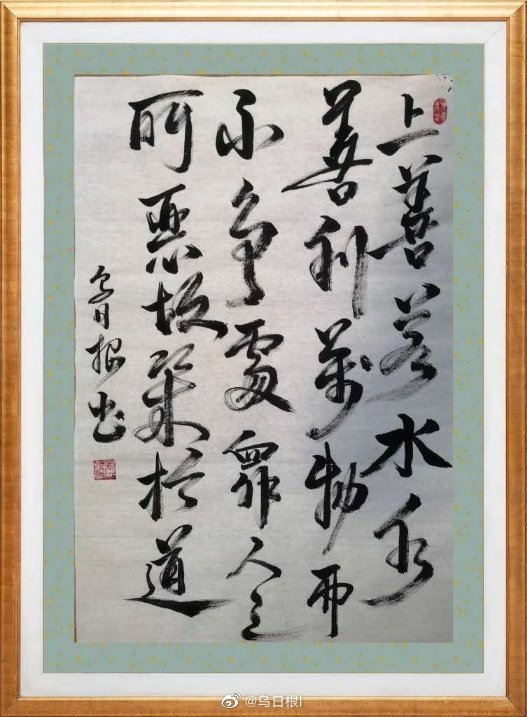 上善若水水
善利萬物而
不争處眾人之
所惡故幾於道
乌日根书
@乌日根l